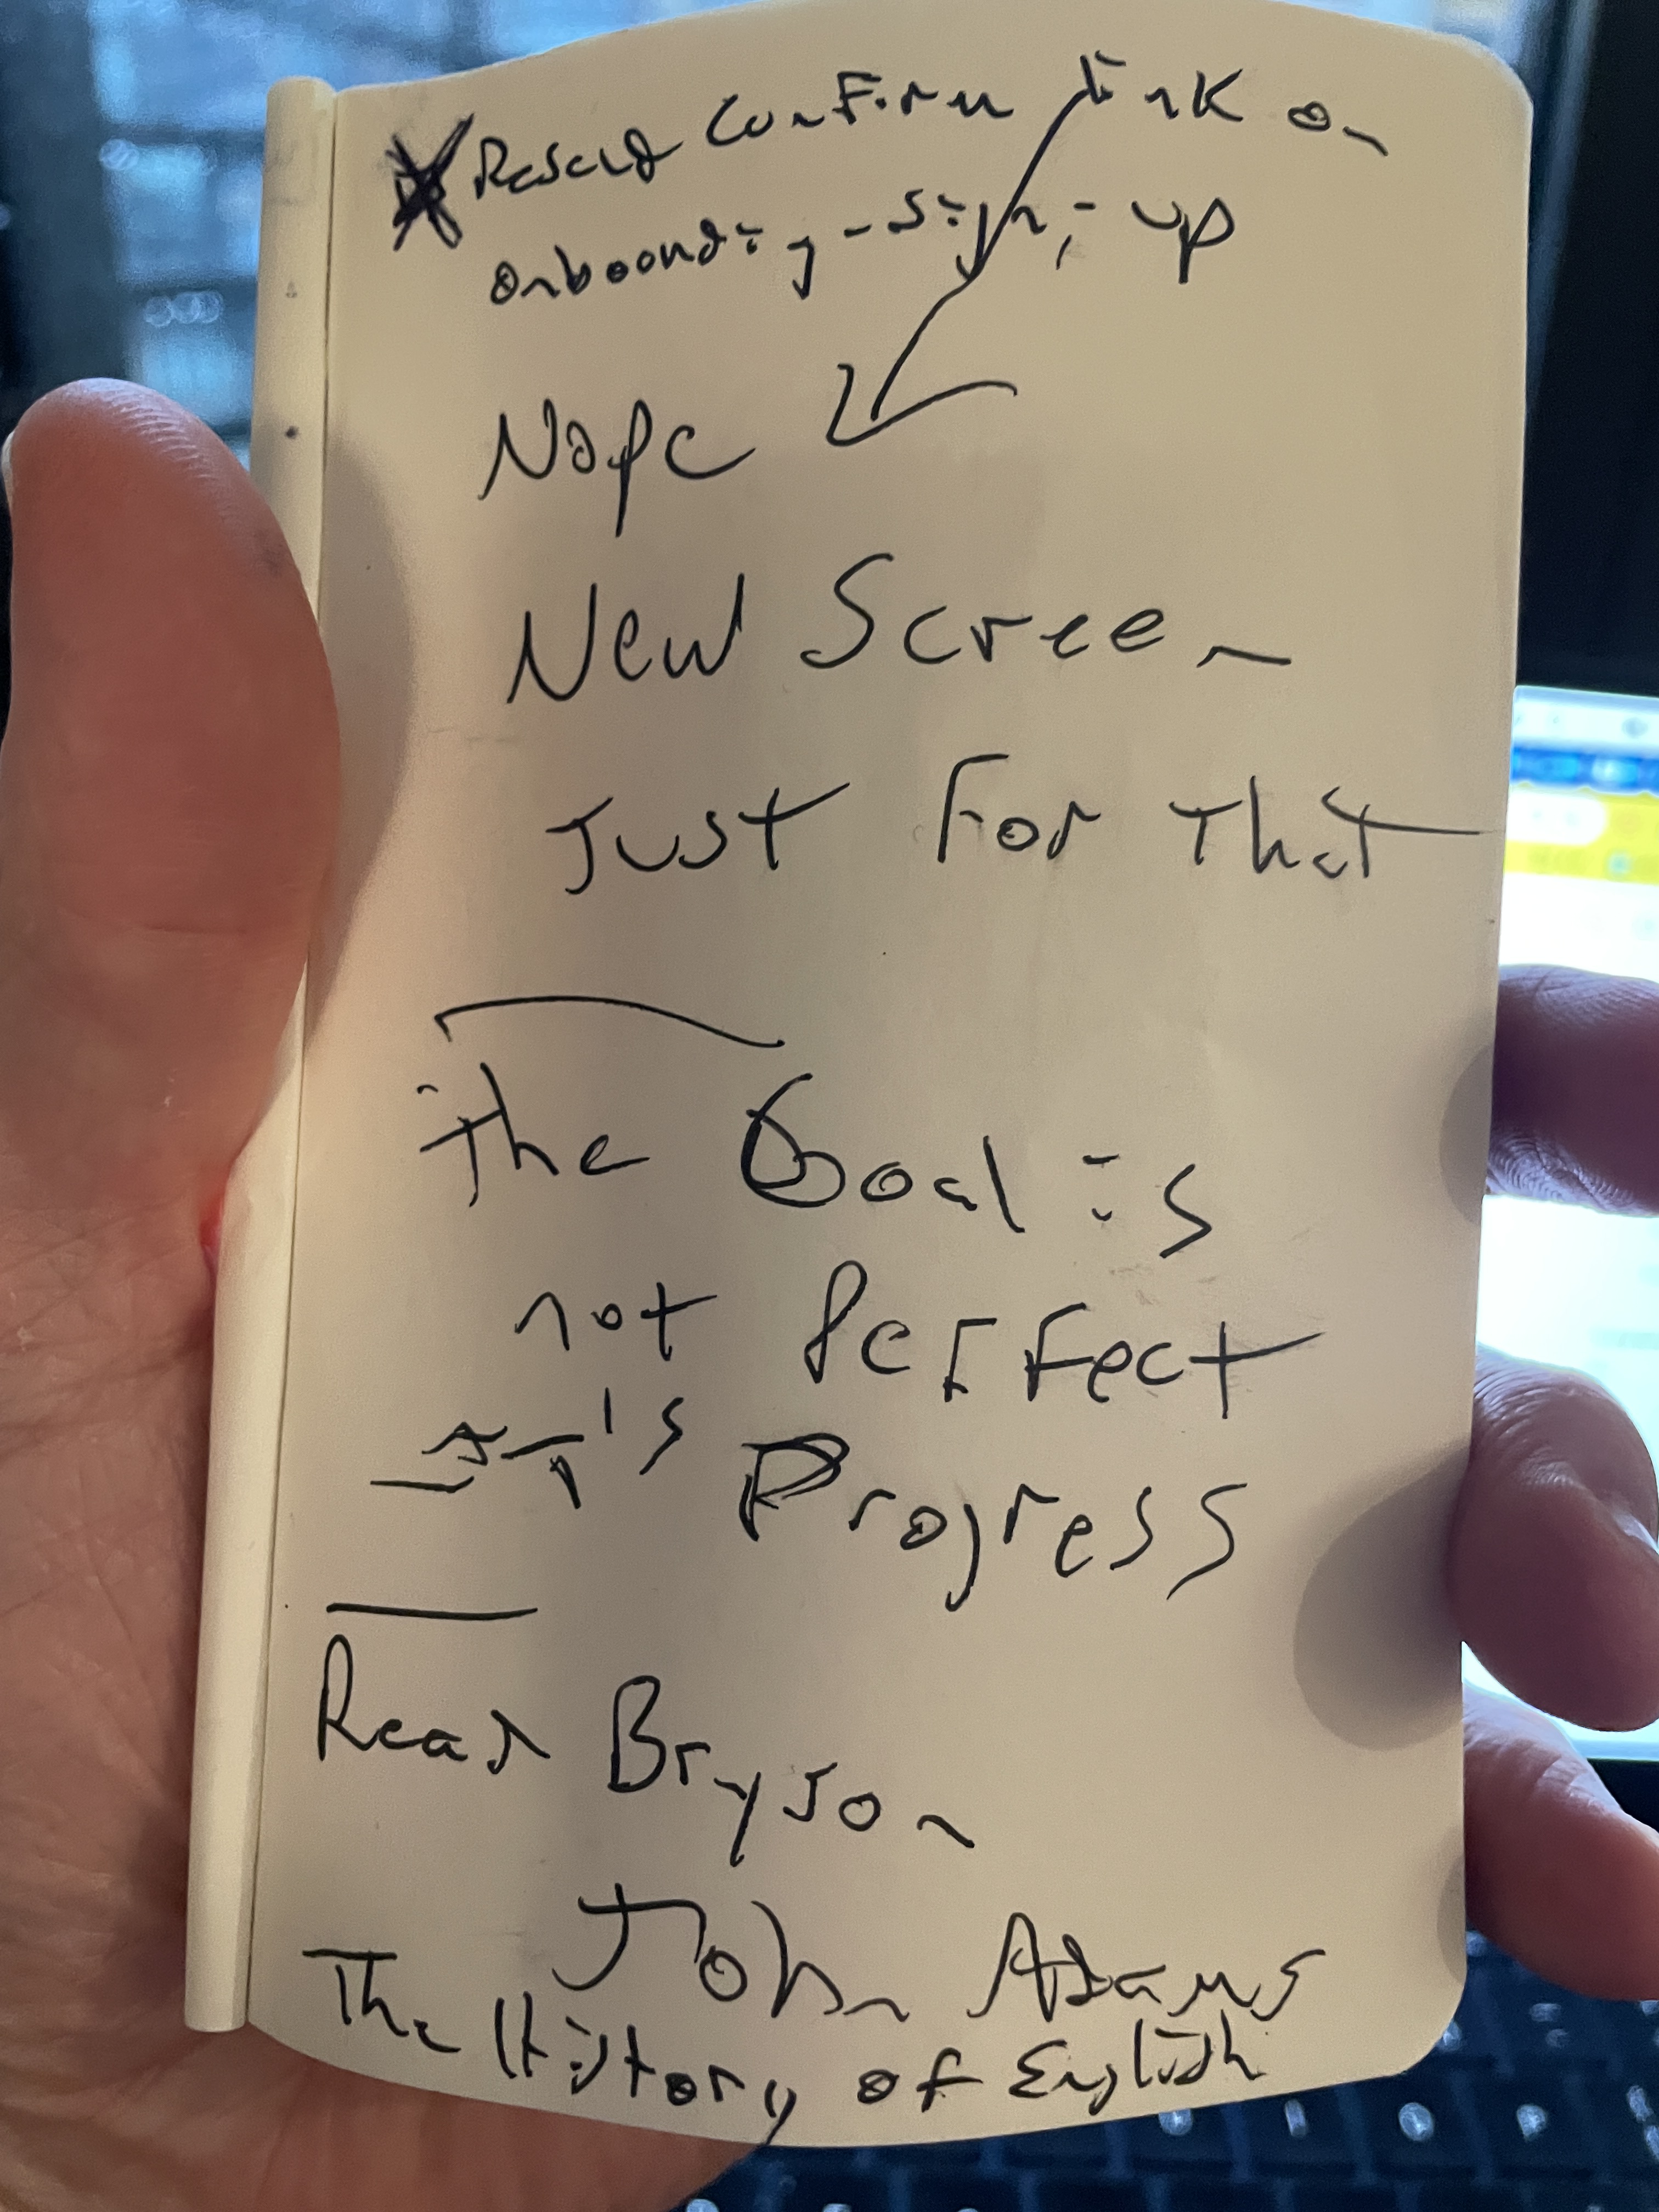 Resend Confirm link on
onboarding - sign - up
Nope
New Screen
Just For That
The Goal is
not Perfect
IT's Progress
Read Bryson
John Adams
The History of English